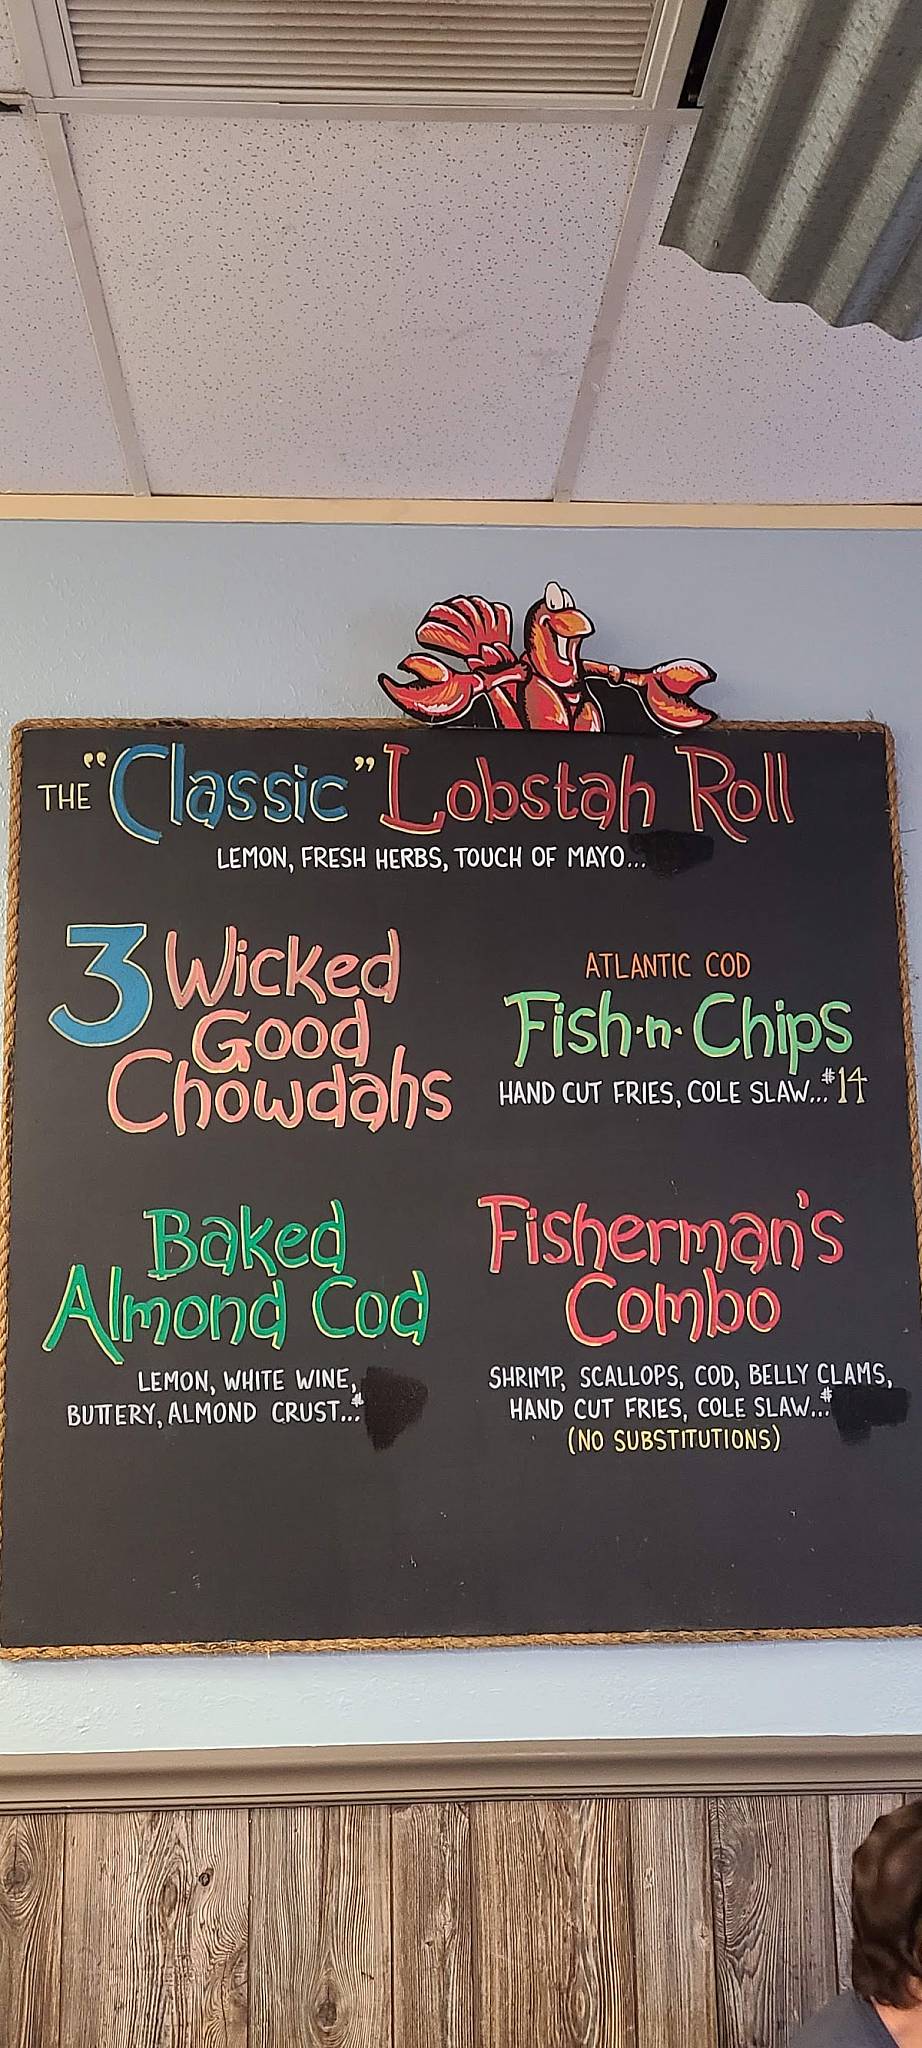 THE "Classic" Lobstah Roll
LEMON, FRESH HERBS, TOUCH OF MAYO...
3 Wicked
Good
Chowdahs
ATLANTIC COD
Fish·n·Chips
HAND CUT FRIES, COLE SLAW...$14
Baked
Almond Cod
LEMON, WHITE WINE,
BUTTERY, ALMOND CRUST...$
Fisherman's
Combo
SHRIMP, SCALLOPS, COD, BELLY CLAMS,
HAND CUT FRIES, COLE SLAW...$
(NO SUBSTITUTIONS)